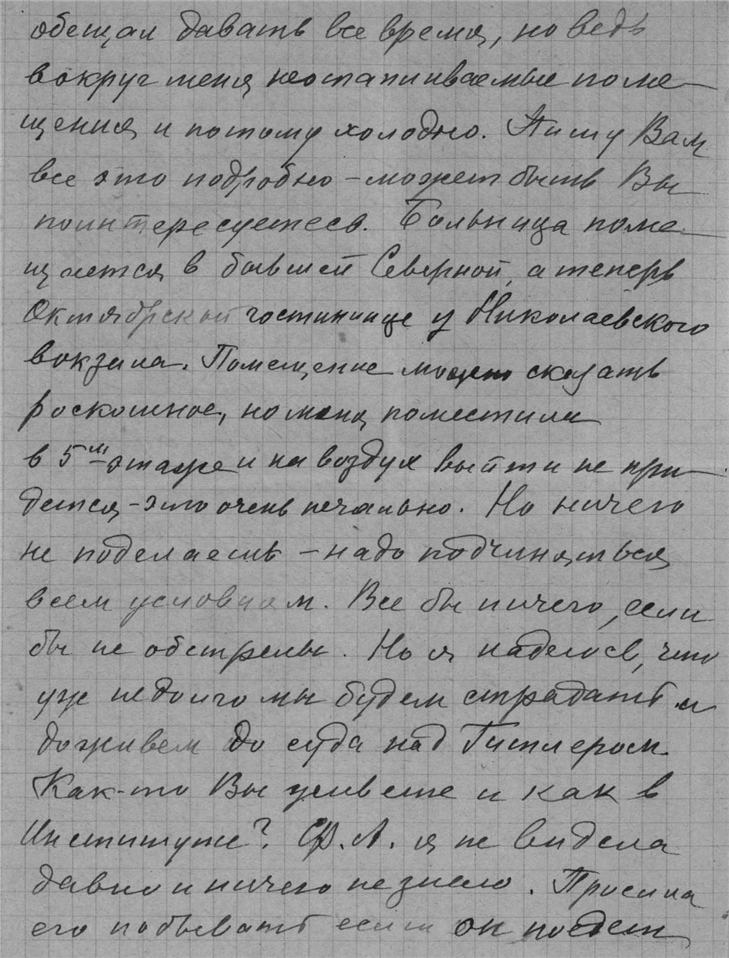 обещал давать все время, но ведь
вокруг меня неотапливаемые поме-
щения и потому холодно. Пишу Вам
все это подробно – может быть Вы
поинтересуетесь. Больница поме-
щается в бывшей Северной, а теперь
Октябрьской гостинице у Николаевского
вокзала. Помещение можно сказать
роскошное, но меня поместили
в 5м этаже и на воздух выйти не при-
дется – это очень печально. Но ничего
не поделаешь – надо подчиняться
всем условиям. Все бы ничего, если
бы не обстрелы. Но я надеюсь, что
уже недолго мы будем страдать и
доживем до суда над Гитлером.
Как-то Вы живете и как в
Институте? Ф. А. я не видела
давно и ничего не знаю. Просила
его побывать если он поедет